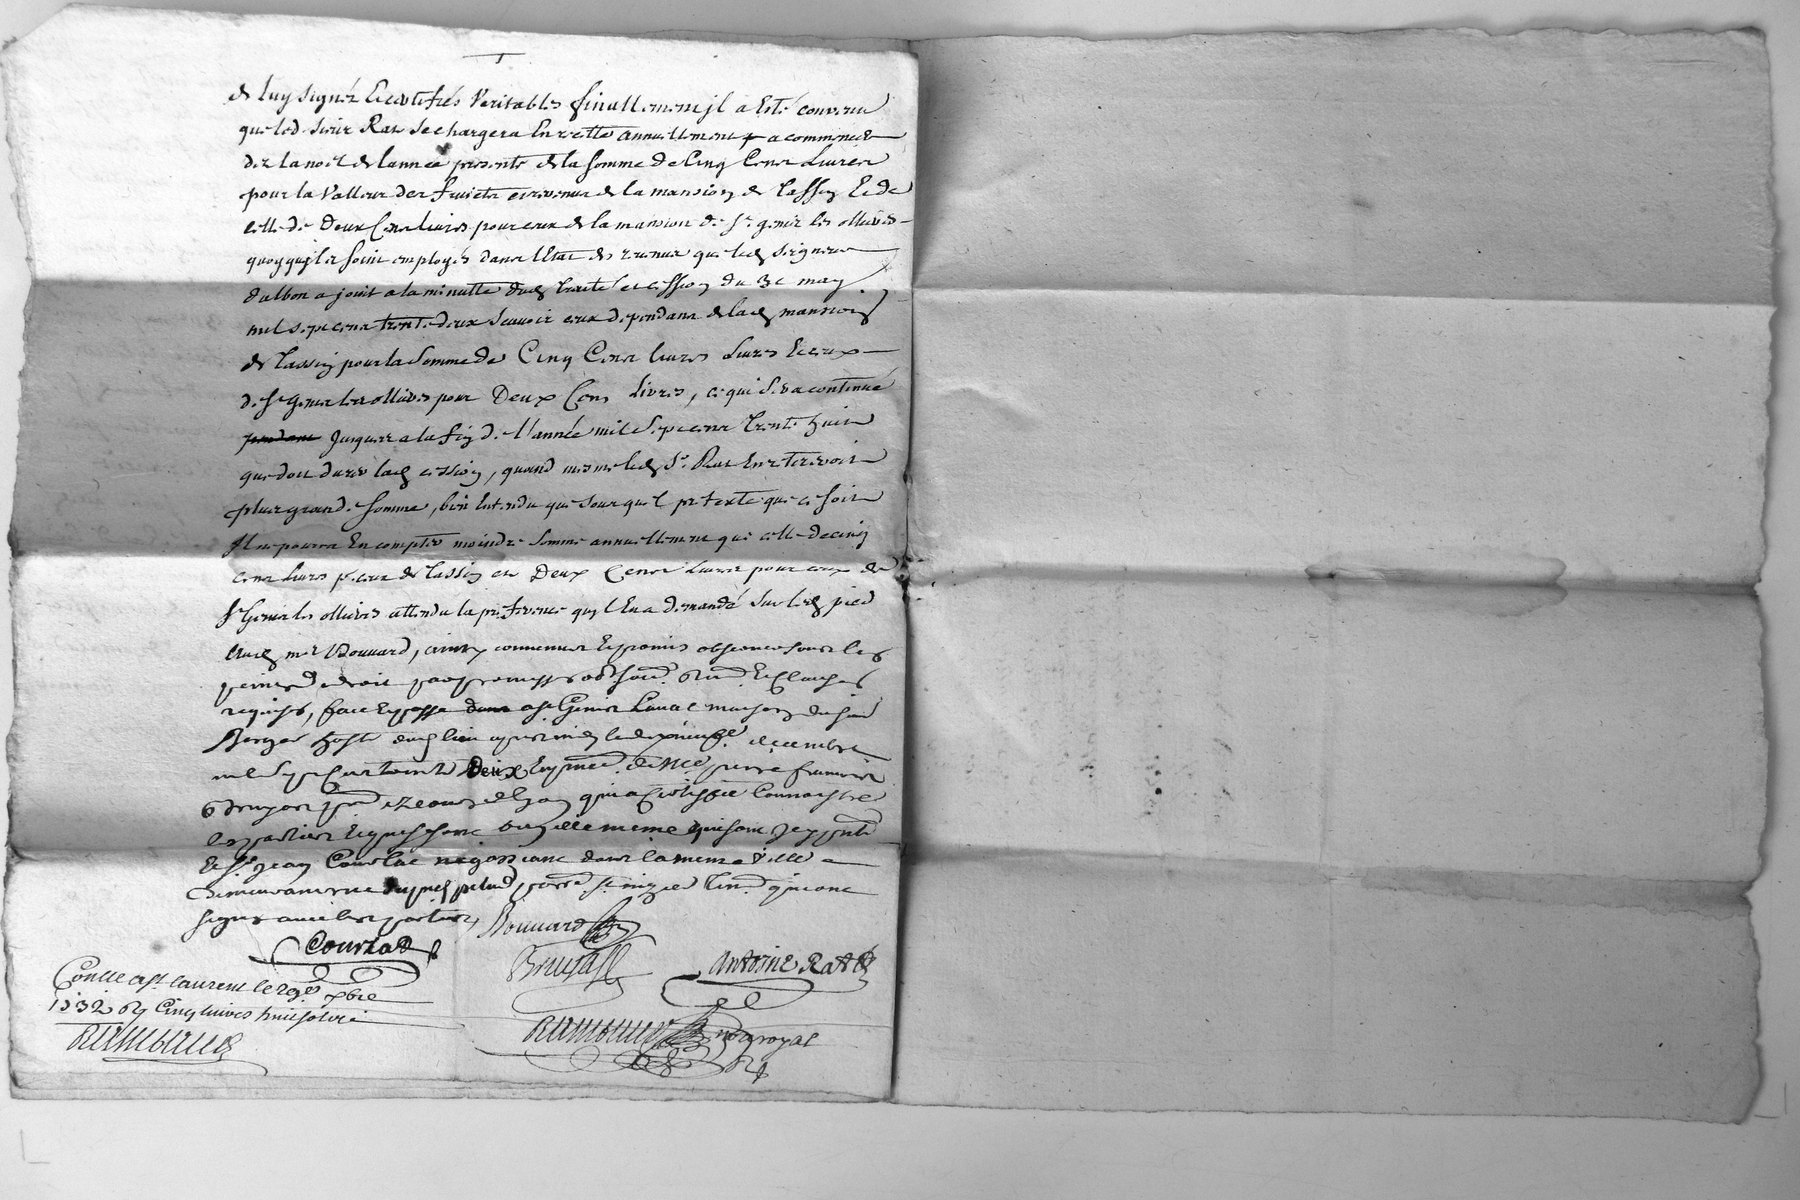 de luy signéz Et certifiés Veritables finallement jl a Esté convenu
que led. sieur Rat se chargera En recette annuellement a commencer
dez la noël de l'année presente de la somme de Cinq Cens Livres
pour la Valleur des fruicts et revenus de la mansion de Tassin Et de
celle de Deux Cens livres pour ceux de la mansion de St. genis les ollieres
quoyqu'jls soint employés dans l'Etat des revenus que led. seigneur
d'albon a jouit a la minutte dud. traité et cession du 30 may
mil sept cens trente deux sçavoir ceux dependans de lad. mansion
de Tassin pour la somme de Cinq Cens livres Livres Et ceux
de St Genis les ollieres pour Deux Cens Livres, ce qui sera continué
pendant jusques a la fin de l'année mil sept cens trente huit
que doit durer lad. cession, quand mesme led. Sr. Rat En retireroit
plus grande somme, bien Entendu que sous quel pretexte que ce soit
Il ne pourra En compter moindre somme annuellement que celle de cinq
cens livres pr. ceux de Tassin et Deux Cens Livres pour ceux de
St Genis les ollieres attendu la preference qu'jl En a demandé sur led. pied
aud. me Bouuard, ainsy convenu Et promis observer sous les
peines de droit par promesse obl. soum. renon. Et clauses
requises, fait Et passé dans a St Genis Laval maison du sieur
Berger hoste dud. lieu apres midy le dixneufe. decembre
mil sept cens trente Deux En presence de Me pierre francois
Bruyas de Lyon qui a certiffié connoistre
les parties Et
Et Sr. Jean Courlat negossiant dans la meme Ville
qui ont
signé avec les parties, Bouuard
Courlat
Bruyas
Antoine Rat
Conlle a St laurent le 29e xbre
1732 Cinq livres huit sols
nore royal